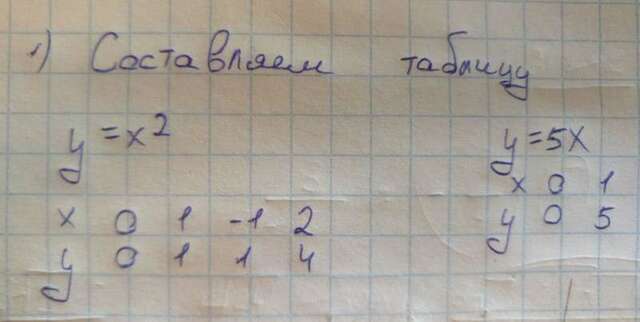 1) Составляем таблицу
y = x² y = 5x
x 0 1
x 0 1 -1 2
y 0 5
y 0 1 1 4